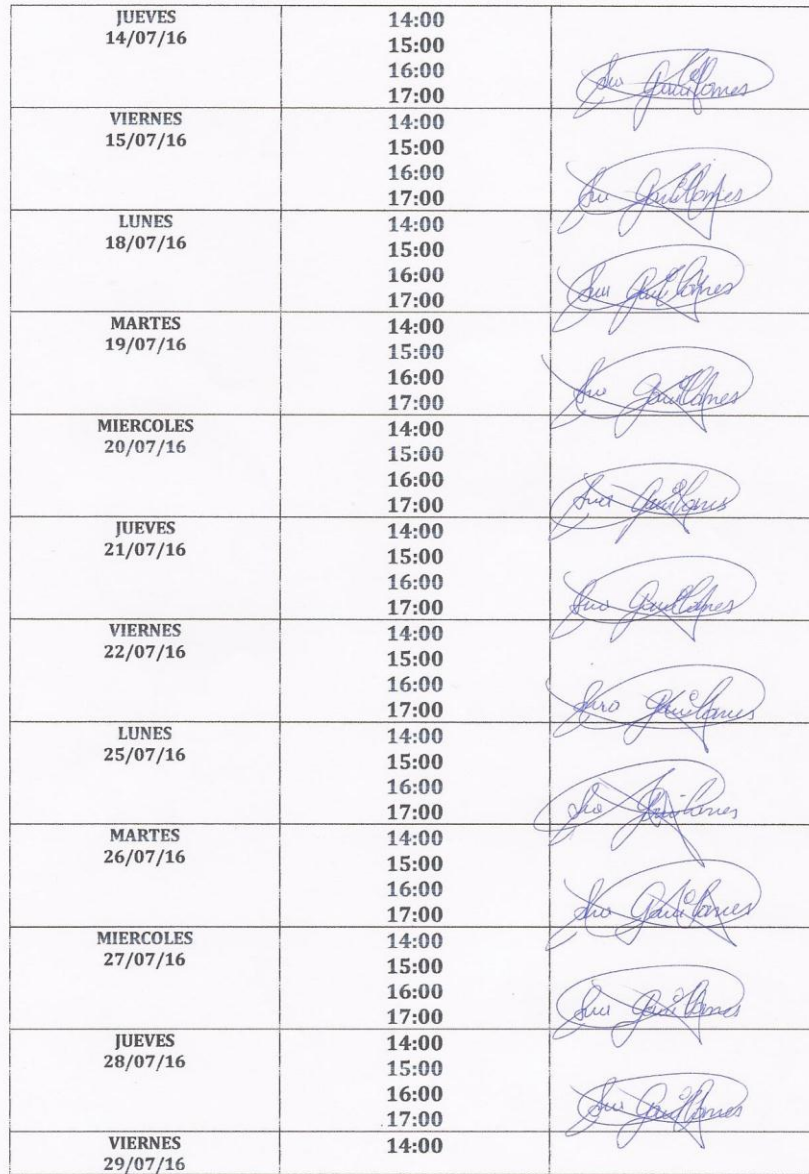 JUEVES
14/07/16
14:00
15:00
16:00
17:00
VIERNES
15/07/16
14:00
15:00
16:00
17:00
LUNES
18/07/16
14:00
15:00
16:00
17:00
MARTES
19/07/16
14:00
15:00
16:00
17:00
MIERCOLES
20/07/16
14:00
15:00
16:00
17:00
JUEVES
21/07/16
14:00
15:00
16:00
17:00
VIERNES
22/07/16
14:00
15:00
16:00
17:00
LUNES
25/07/16
14:00
15:00
16:00
17:00
MARTES
26/07/16
14:00
15:00
16:00
17:00
MIERCOLES
27/07/16
14:00
15:00
16:00
17:00
JUEVES
28/07/16
14:00
15:00
16:00
17:00
VIERNES
29/07/16
14:00